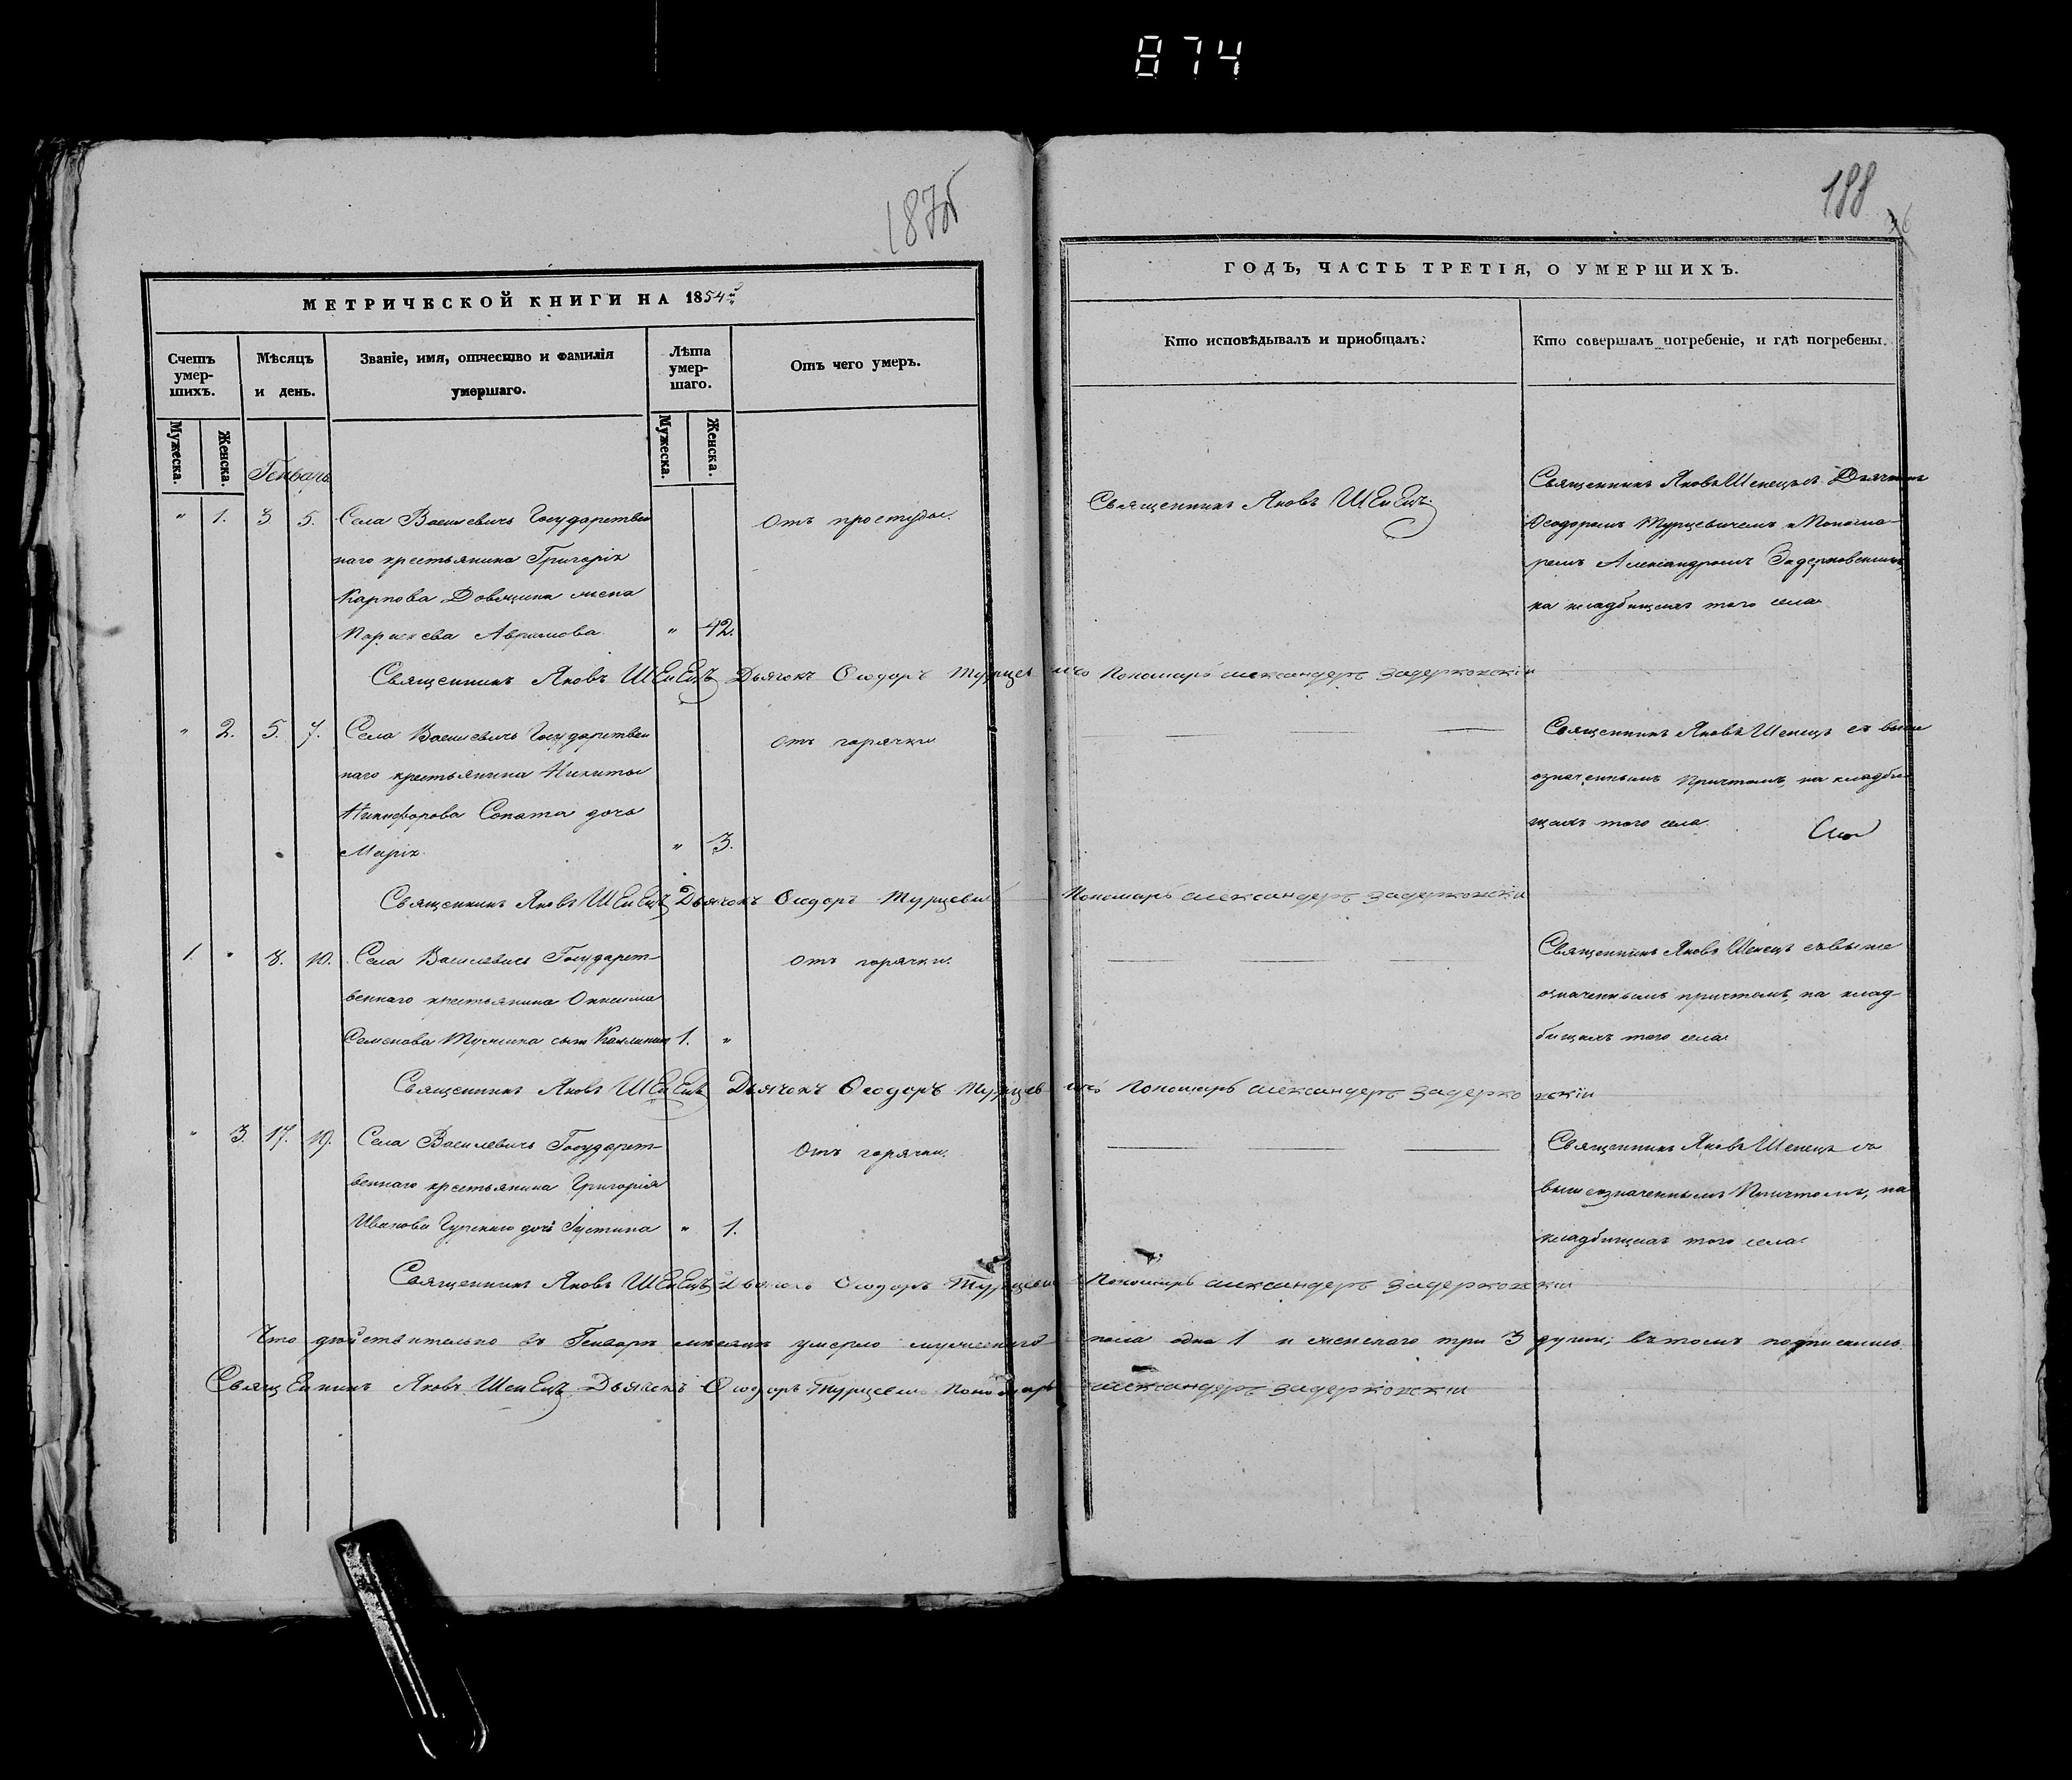 874
188
МЕТРИЧЕСКОЙ КНИГИ НА 1854й
ГОДЪ, ЧАСТЬ ТРЕТІЯ, О УМЕРШИХЪ.
Счетъ умер-шихъ.
Мужеска.
Женска.
Мѣсяцъ и день.
Званіе, имя, отчество и фамилія умершаго.
Лѣта умер-шаго.
Мужеска.
Женска.
Отъ чего умеръ.
Кто исповѣдывалъ и приобщалъ.
Кто совершалъ погребеніе, и гдѣ погребены.
Генварь
" 1. 3 5. Села Василевичъ Государствен
наго крестьянина Григорія
Карпова жена
Авраамова " 42.
Отъ простуды.
Священникъ Яковъ Шенецъ
Священникъ Яковъ Шенецъ съ Дьячкомъ
Ѳеодоромъ Турцевичемъ и Понома-
ремъ Александромъ Задерковскимъ,
на кладбищахъ того села
Священникъ Яковъ Шенецъ Дьячокъ Ѳеодоръ Турцевичъ Пономарь александеръ задерковскіи
" 2. 5. 7. Села Василевичъ Государствен
наго крестьянина Никиты
Никифорова Сопота дочь
Марія " 3.
отъ горячки
Священникъ Яковъ Шенецъ съ выше
означеннымъ причтомъ, на кладби
щахъ того села
Священникъ Яковъ Шенецъ Дьячокъ Ѳеодоръ Турцевичъ Пономарь александеръ задерковскіи
1. " 8. 10. Села Василевичъ Государст-
веннаго крестьянина Онисима
Семенова сынъ 1. "
отъ горячки.
Священникъ Яковъ Шенецъ съ выше
означеннымъ причтомъ, на клад-
бищахъ того села
Священникъ Яковъ Шенецъ Дьячокъ Ѳеодоръ Турцевичъ Пономарь александеръ задерковскіи
" 3. 17. 19. Села Василевичъ Государст-
веннаго крестьянина Григорія
Иванова дочь Іустина " 1.
Отъ горячки.
Священникъ Яковъ Шенецъ съ
вышеозначеннымъ Причтомъ, на
кладбищахъ того села
Священникъ Яковъ Шенецъ Дьячокъ Ѳеодоръ Турцевичъ Пономарь александеръ задерковскіи
Что дѣйствительно въ Генварѣ мѣсяцѣ умерло мужескаго пола одна 1 и женскаго три 3 души; въ томъ подписались
Священникъ Яковъ Шенецъ Дьячокъ Ѳеодоръ Турцевичъ Пономарь александеръ задерковскіи